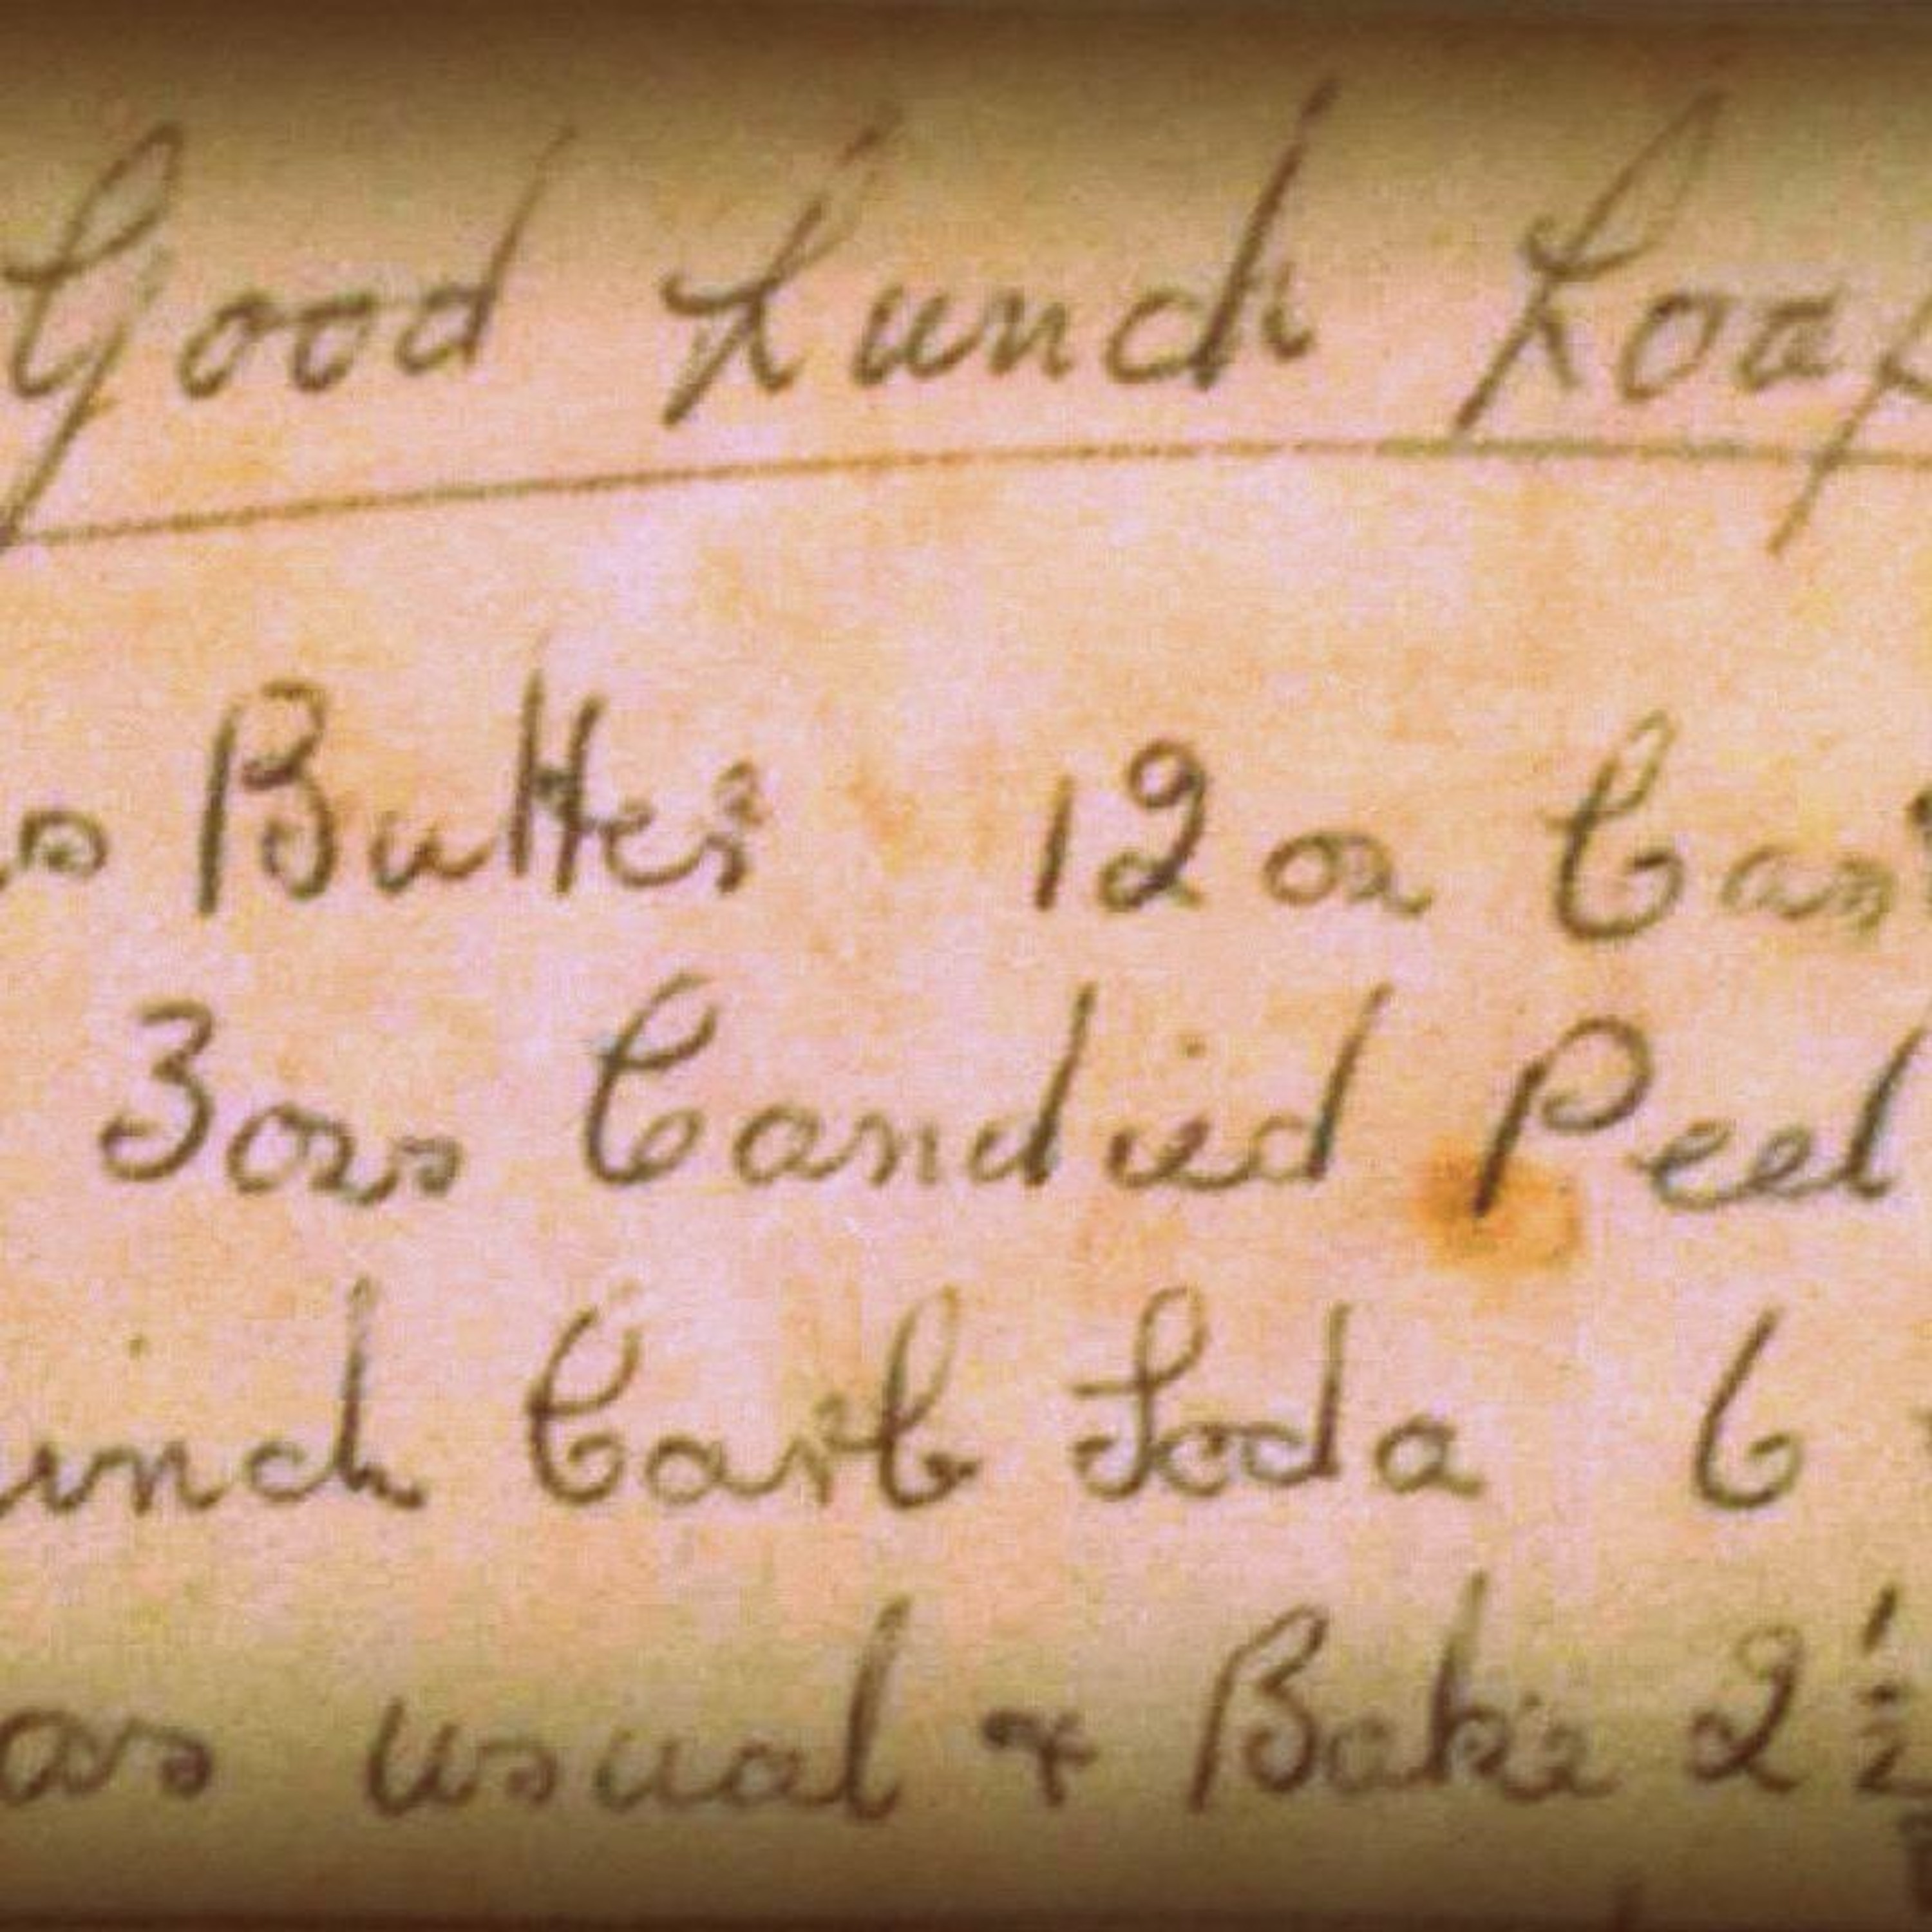 Good Lunch Loaf
Butter 12 oz Cas
3 ozs Candied Peel
inch Carb Soda 6
as usual & Bake 2 1/2